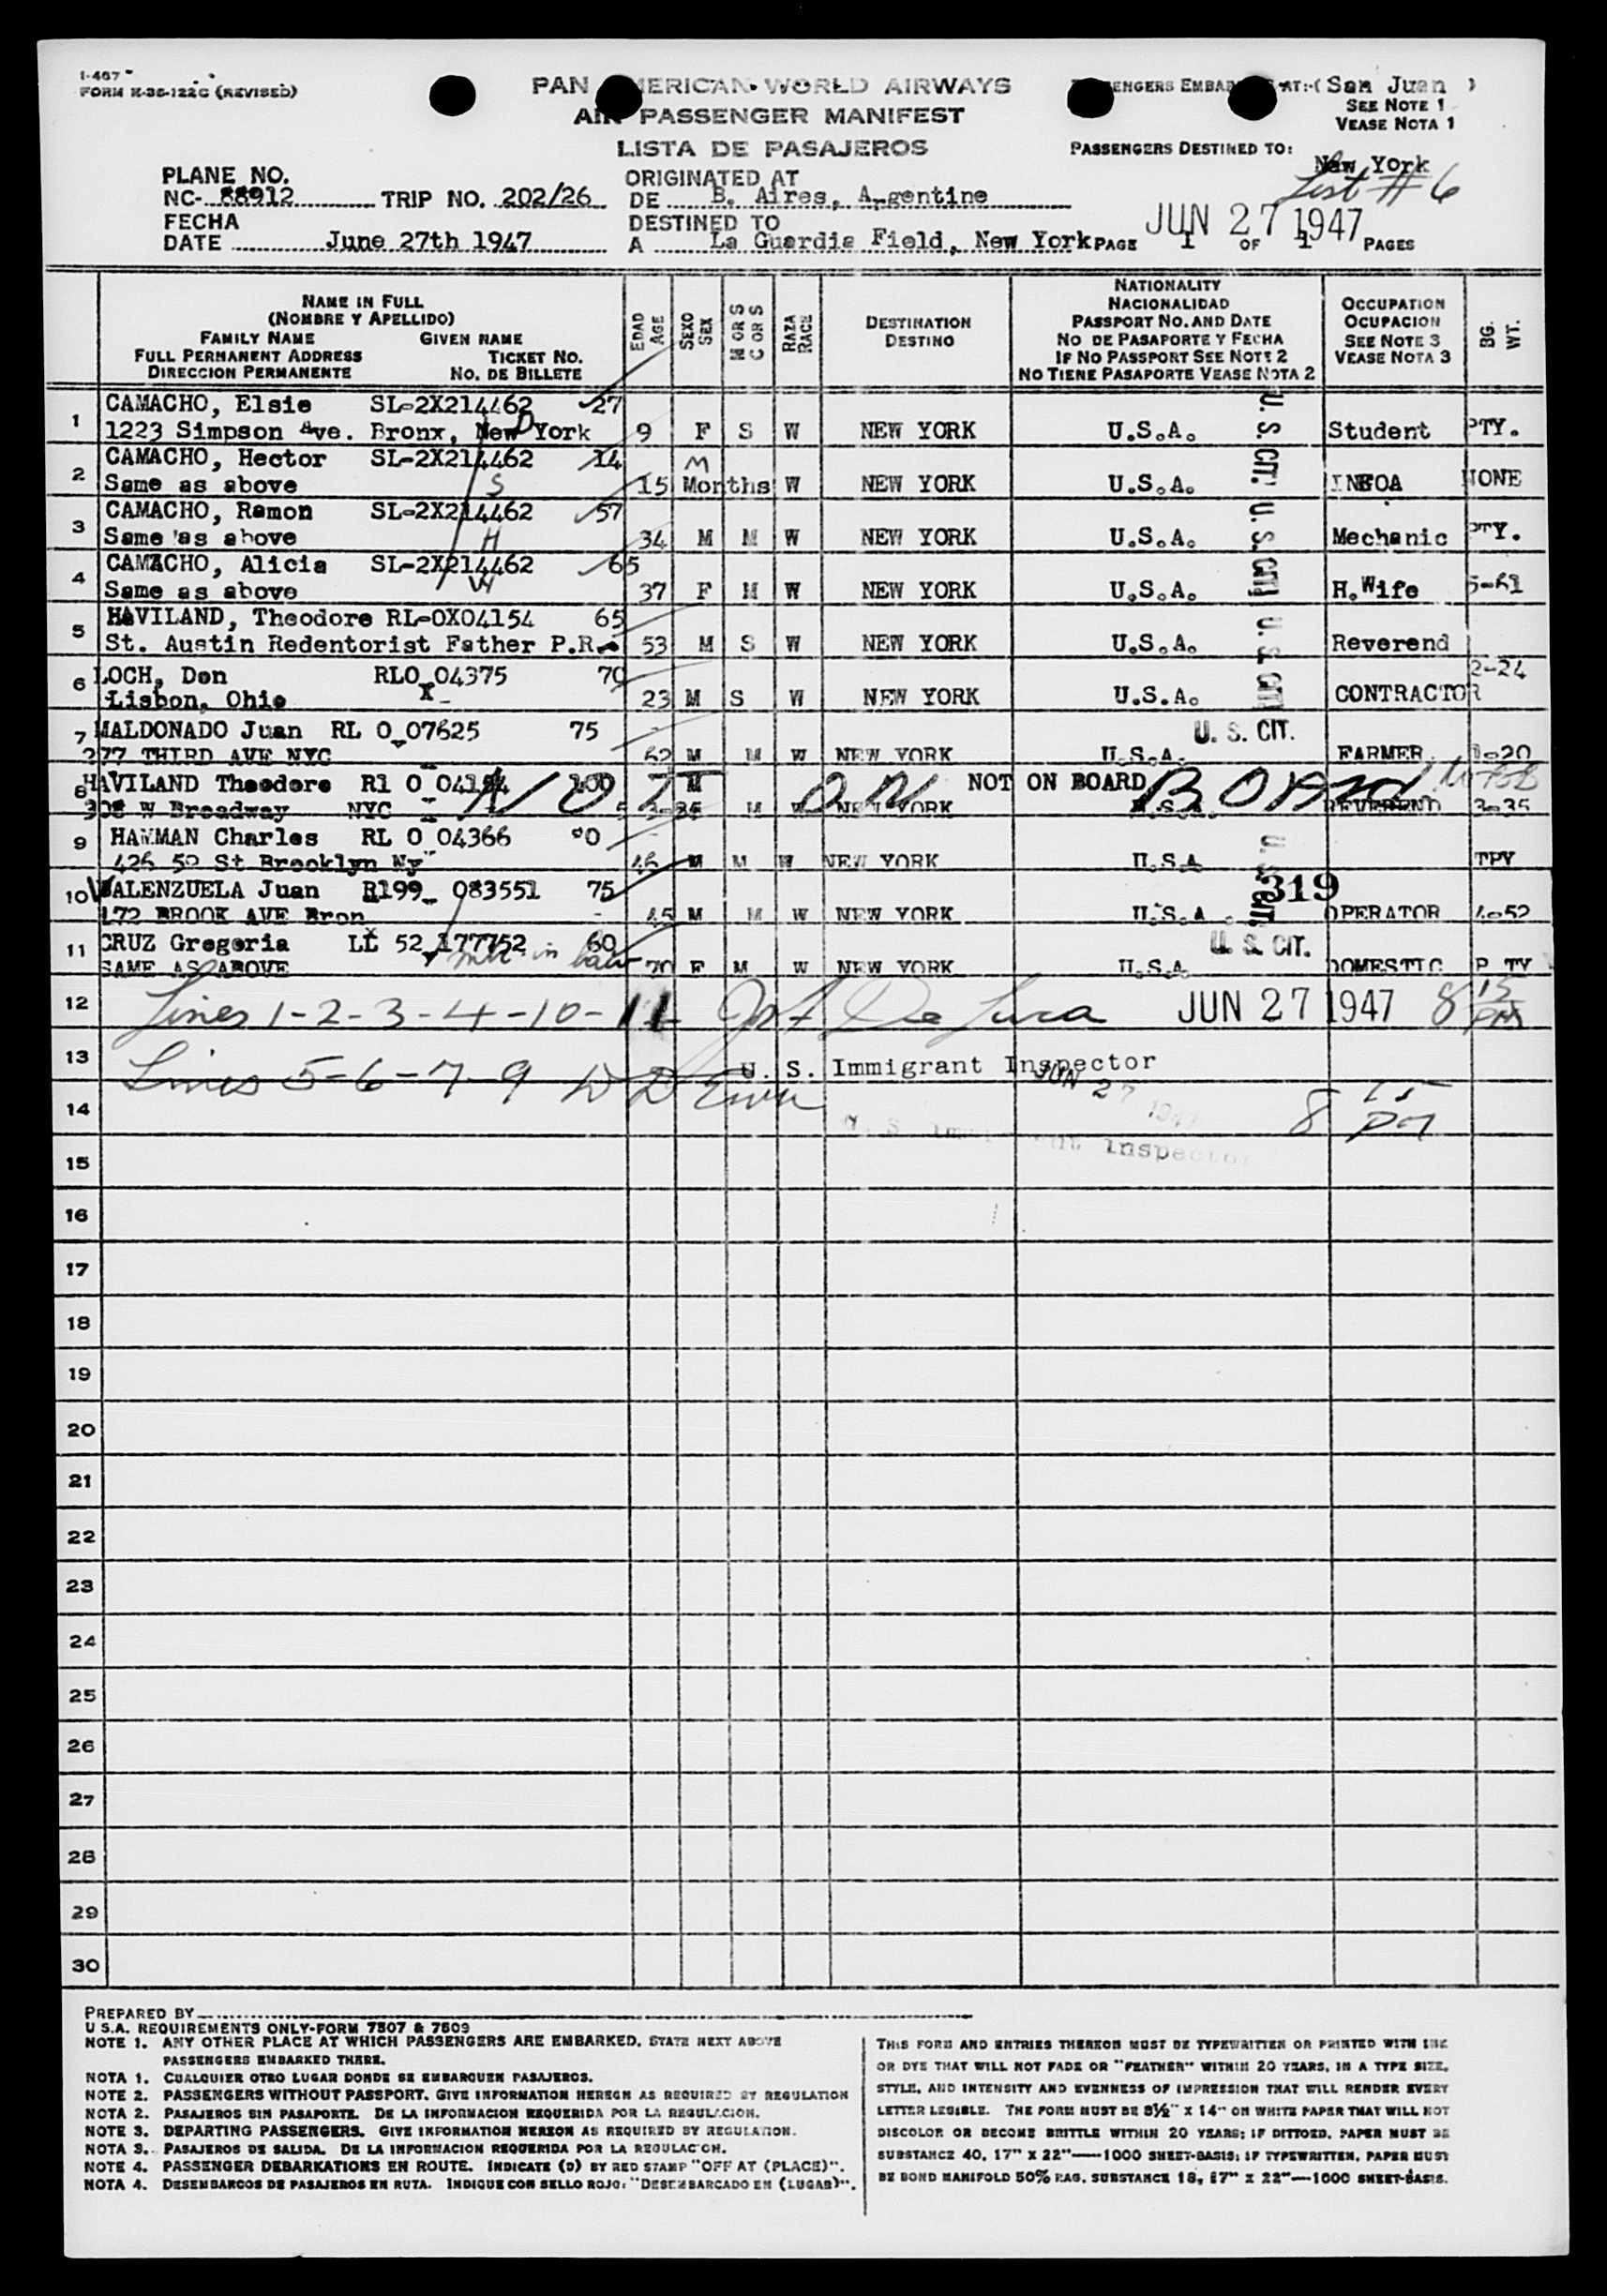 I-467
FORM K-36-122C (REVISED)
PAN AMERICAN WORLD AIRWAYS
AIR PASSENGER MANIFEST
LISTA DE PASAJEROS
PASSENGERS EMBARKED AT:-( San Juan )
SEE NOTE 1
VEASE NOTA 1
PASSENGERS DESTINED TO:
New York
List #6
PLANE NO.
NC- 88912 TRIP NO. 202/26
ORIGINATED AT
DE B. Aires, Argentine
FECHA
DATE June 27th 1947
DESTINED TO
A La Guardia Field, New York PAGE 1 OF 1 PAGES
JUN 27 1947
NAME IN FULL
(NOMBRE Y APELLIDO)
FAMILY NAME GIVEN NAME
FULL PERMANENT ADDRESS TICKET NO.
DIRECCION PERMANENTE NO. DE BILLETE
EDAD AGE
SEXO SEX
M OR S C OR S
RAZA RACE
DESTINATION
DESTINO
NATIONALITY
NACIONALIDAD
PASSPORT NO. AND DATE
NO DE PASAPORTE Y FECHA
IF NO PASSPORT SEE NOTE 2
NO TIENE PASAPORTE VEASE NOTA 2
OCCUPATION
OCUPACION
SEE NOTE 3
VEASE NOTA 3
BG. WT.
1 CAMACHO, Elsie SL-2X214462 27
1223 Simpson Ave. Bronx, New York 9 F S W NEW YORK U.S.A. U. S. CIT. Student PTY.
D
2 CAMACHO, Hector SL-2X214462 14 M
Same as above S 15 Months W NEW YORK U.S.A. INFOA NONE
3 CAMACHO, Ramon SL-2X214462 57
Same as above H 34 M M W NEW YORK U.S.A. U. S. CIT. Mechanic PTY.
4 CAMACHO, Alicia SL-2X214462 65
Same as above W 37 F M W NEW YORK U.S.A. H.Wife 5-61
5 HAVILAND, Theodore RL-OX04154 65
St. Austin Redentorist Father P.R. 53 M S W NEW YORK U.S.A. U. S. CIT. Reverend
6 LOCH, Don RLO 04375 70 2-24
X
Lisbon, Ohio 23 M S W NEW YORK U.S.A. CONTRACTOR
7 MALDONADO Juan RL O 07625 75 U. S. CIT.
277 THIRD AVE NYC 62 M M W NEW YORK U.S.A. FARMER 1-20
8 HAVILAND Theodore Rl O 04154 100 M NOT ON BOARD
NOT ON BOARD
308 W Broadway NYC M W NEW YORK U.S.A. REVEREND 3-35
9 HAMMAN Charles RL O 04366 90
426 52 St Brooklyn Ny 46 M M W NEW YORK U.S.A U. S. CIT. TPY
10 VALENZUELA Juan R199 083551 75 319
172 BROOK AVE Bron 45 M M W NEW YORK U.S.A. OPERATOR 4-52
11 CRUZ Gregoria LL 52 177752 60 U. S. CIT.
mot in law
SAME AS ABOVE 70 F M W NEW YORK U.S.A. DOMESTIC P TY
12 Lines 1-2-3-4-10-11 JUN 27 1947 8 15 PM
13 U. S. Immigrant Inspector
Lines 5-6-7-9 JUN 27 1947
14 8 15 PM
U. S. Immigrant Inspector
15
16
17
18
19
20
21
22
23
24
25
26
27
28
29
30
PREPARED BY
U S.A. REQUIREMENTS ONLY-FORM 7507 & 7509
NOTE 1. ANY OTHER PLACE AT WHICH PASSENGERS ARE EMBARKED, STATE NEXT ABOVE
PASSENGERS EMBARKED THERE.
NOTA 1. CUALQUIER OTRO LUGAR DONDE SE EMBARQUEN PASAJEROS.
NOTE 2. PASSENGERS WITHOUT PASSPORT. GIVE INFORMATION HEREON AS REQUIRED BY REGULATION
NOTA 2. PASAJEROS SIN PASAPORTE. DE LA INFORMACION REQUERIDA POR LA REGULACION.
NOTE 3. DEPARTING PASSENGERS. GIVE INFORMATION HEREON AS REQUIRED BY REGULATION.
NOTA 3. PASAJEROS DE SALIDA. DE LA INFORMACION REQUERIDA POR LA REGULACION.
NOTE 4. PASSENGER DEBARKATIONS EN ROUTE. INDICATE (D) BY RED STAMP "OFF AT (PLACE)".
NOTA 4. DESEMBARCOS DE PASAJEROS EN RUTA. INDIQUE CON SELLO ROJO: "DESEMBARCADO EN (LUGAR)".
THIS FORM AND ENTRIES THEREON MUST BE TYPEWRITTEN OR PRINTED WITH INK
OR DYE THAT WILL NOT FADE OR "FEATHER" WITHIN 20 YEARS, IN A TYPE SIZE,
STYLE, AND INTENSITY AND EVENNESS OF IMPRESSION THAT WILL RENDER EVERY
LETTER LEGIBLE. THE FORM MUST BE 8½" X 14" ON WHITE PAPER THAT WILL NOT
DISCOLOR OR BECOME BRITTLE WITHIN 20 YEARS; IF DITTOED, PAPER MUST BE
SUBSTANCE 40, 17" X 22"—1000 SHEET-BASIS; IF TYPEWRITTEN, PAPER MUST
BE BOND MANIFOLD 50% RAG, SUBSTANCE 18, 17" X 22"—1000 SHEET-BASIS.